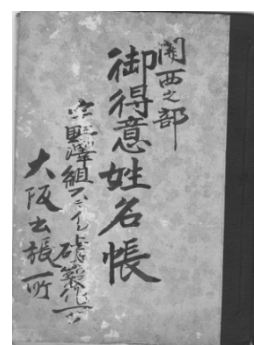 関西之部
御得意姓名帳
宇野澤組
大阪出張所